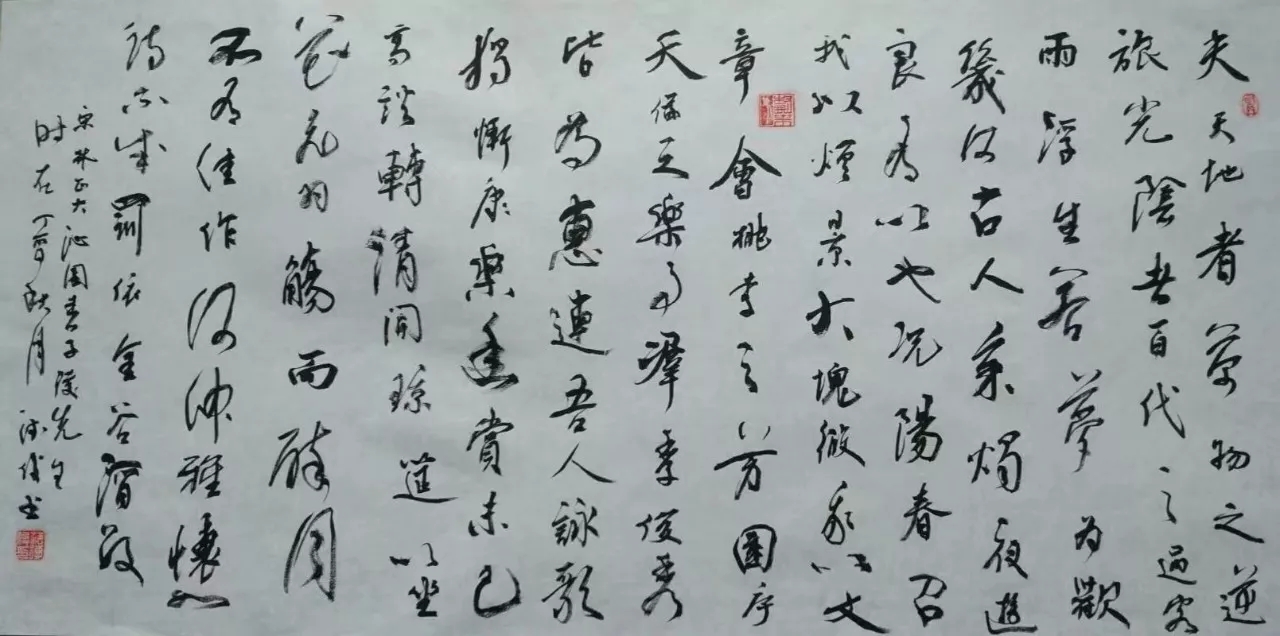 夫天地者萬物之逆
旅光陰者百代之過客
雨浮生若夢為歡
幾何古人秉燭夜遊
良有以也況陽春召
我以煙景大塊假我以文
章會桃李之芳園序
天倫之樂事群季俊秀
皆為惠連吾人詠歌
獨慚康樂幽賞未已
高談轉清開瓊筵以坐
花飛羽觴而醉月
不有佳作何伸雅懷如
詩不成罰依金谷酒數
宋林正大沁園春子陵先生
时在丁酉秋月书